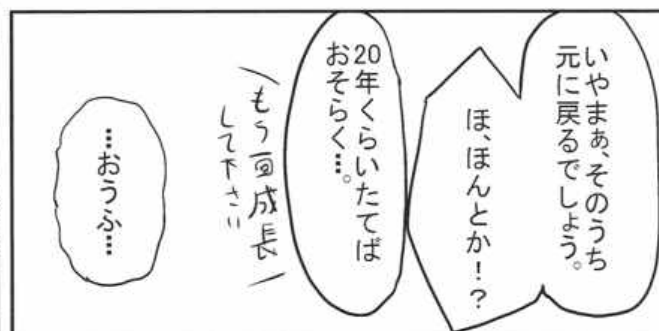 いやまぁ、そのうち
元に戻るでしょう。
ほ、ほんとか！？
20年くらいたてば
おそらく…。
もう一回成長
して下さい
…おうふ…